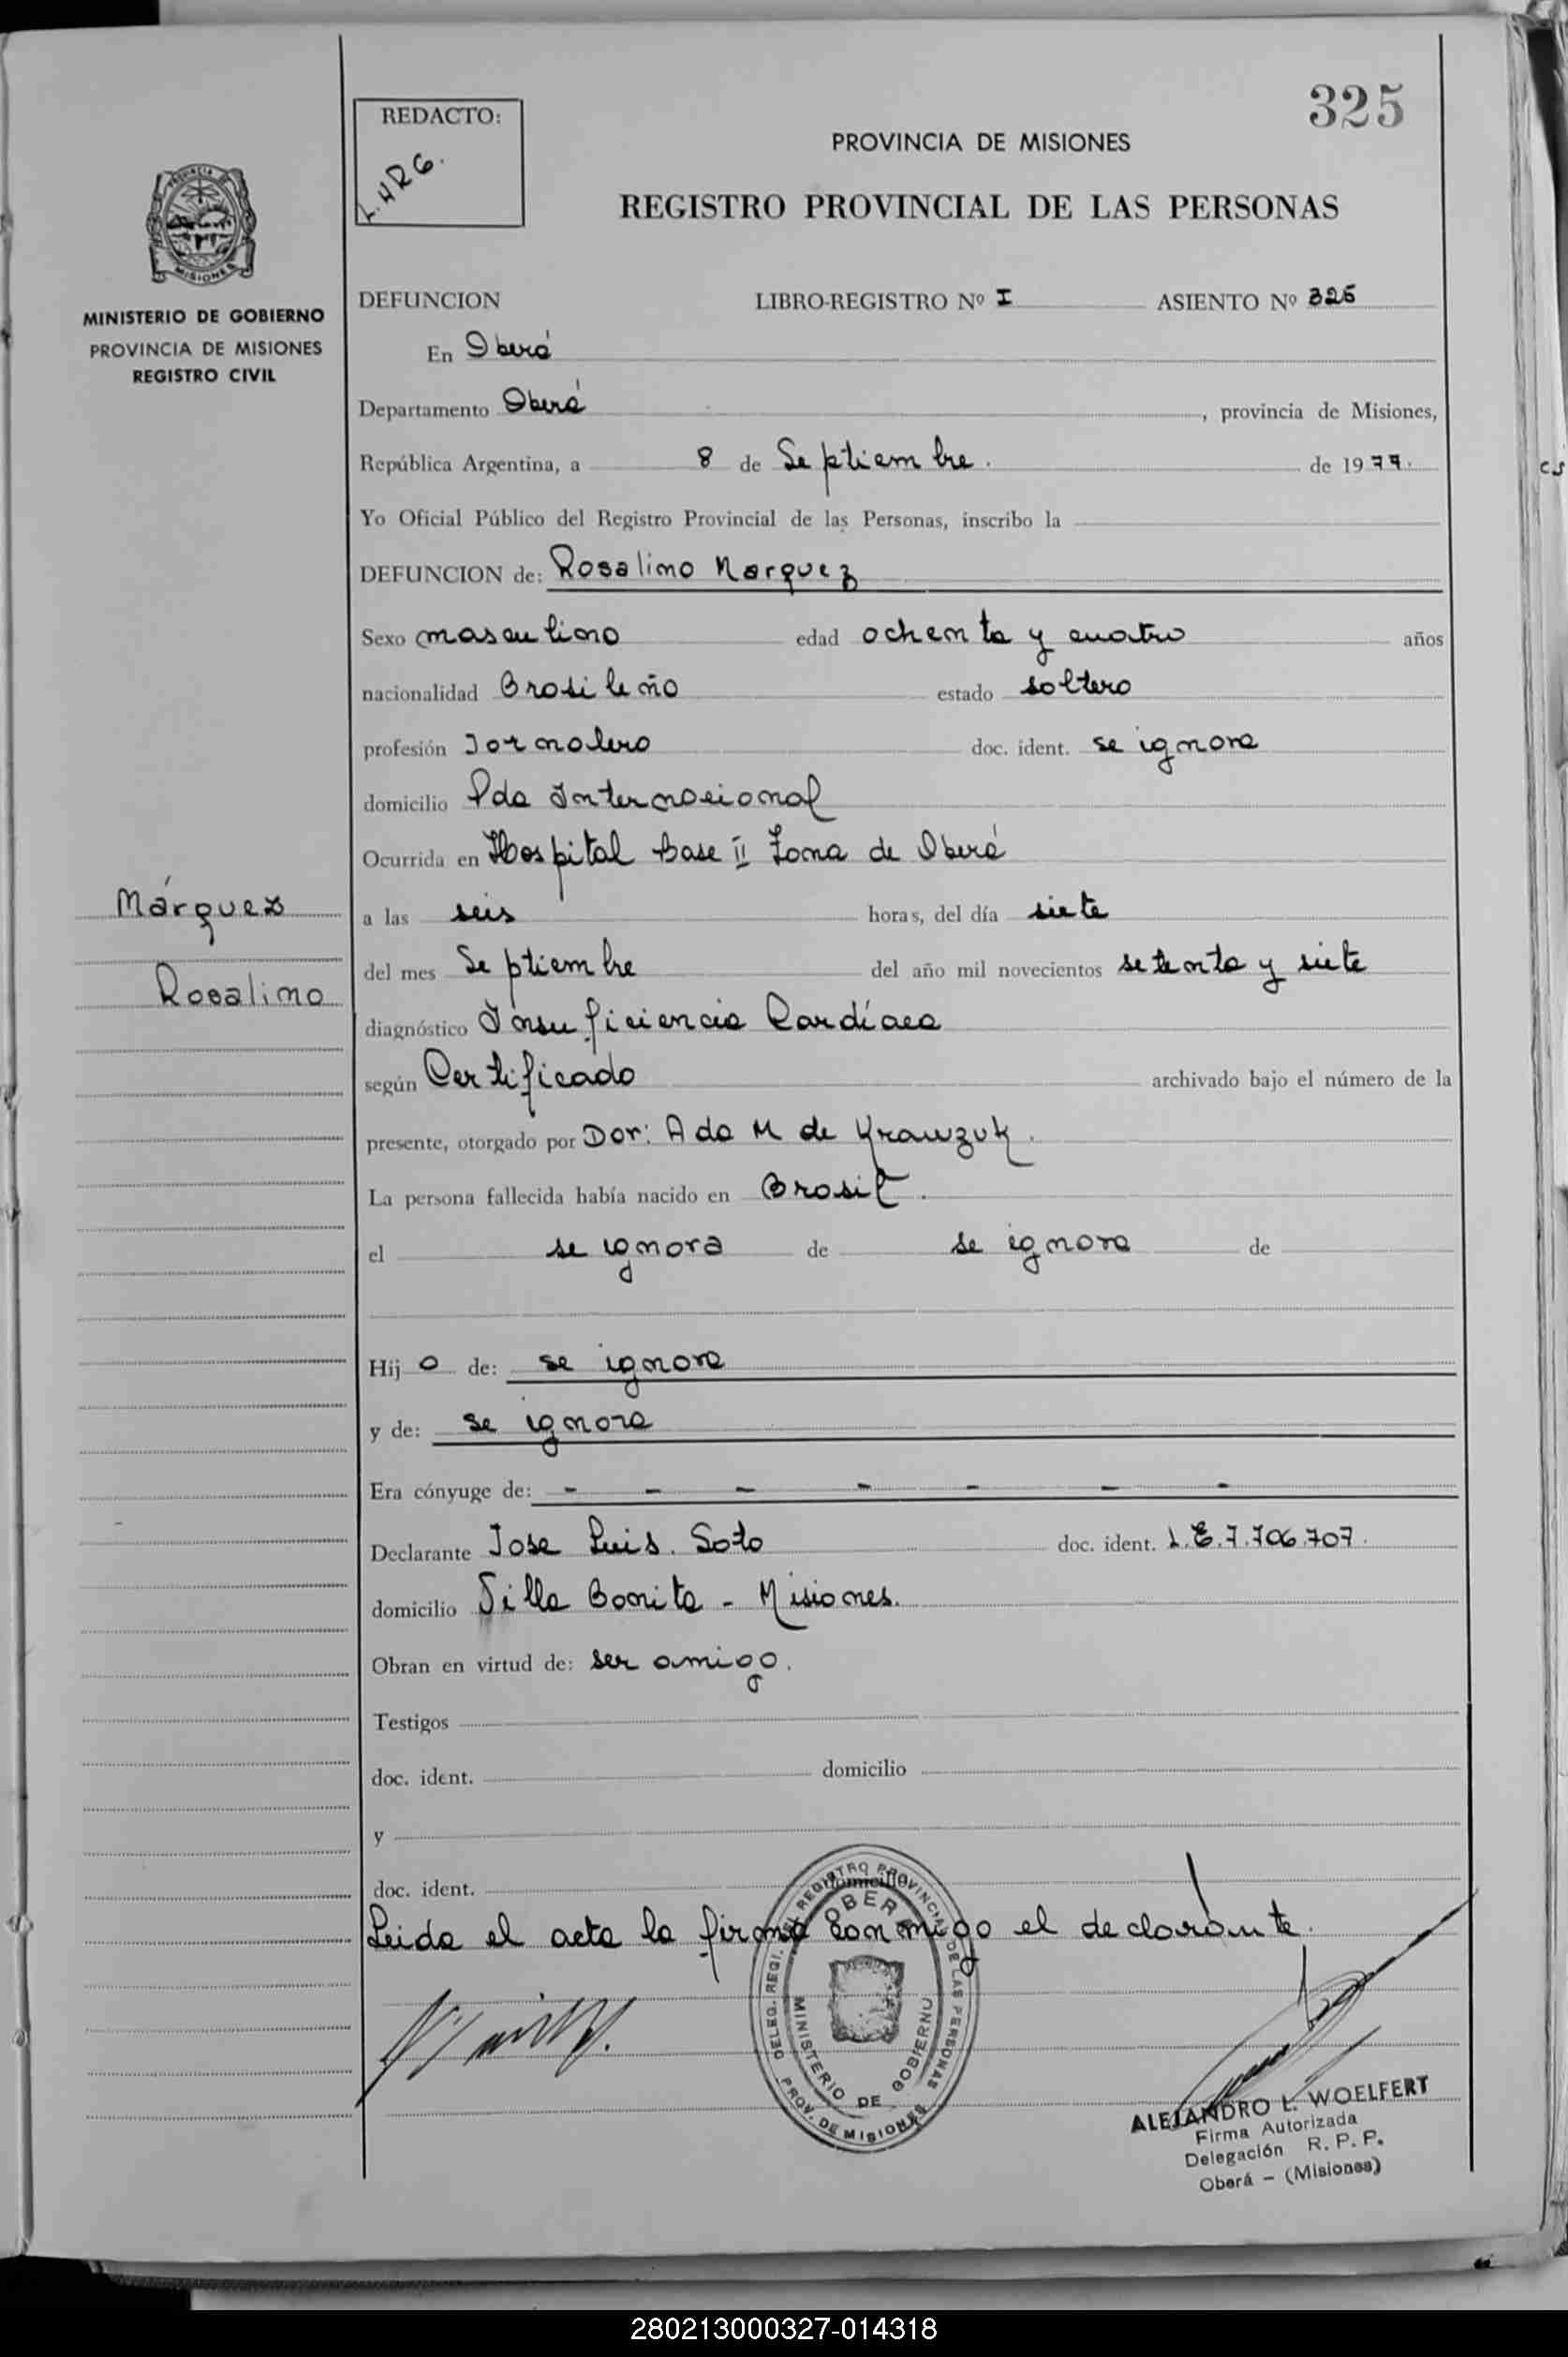 325
REDACTO:
L.HRG.
PROVINCIA DE MISIONES
REGISTRO PROVINCIAL DE LAS PERSONAS
PROVINCIA
MISIONES
MINISTERIO DE GOBIERNO
PROVINCIA DE MISIONES
REGISTRO CIVIL
DEFUNCION LIBRO-REGISTRO Nº I ASIENTO Nº 325
En Oberá
Departamento Oberá, provincia de Misiones,
República Argentina, a 8 de Septiembre. de 1977.
Yo Oficial Público del Registro Provincial de las Personas, inscribo la
DEFUNCION de: Rosalino Marquez
Sexo masculino edad ochenta y cuatro años
nacionalidad Brasileño estado soltero
profesión Jornalero doc. ident. se ignora
domicilio Pda Internacional
Ocurrida en Hospital Base II Zona de Oberá
Márquez
Rosalino
a las seis horas, del día siete
del mes Septiembre del año mil novecientos setenta y siete
diagnóstico Insuficiencia Cardíaca
según Certificado archivado bajo el número de la
presente, otorgado por Dor: Ada M de Krawzuk.
La persona fallecida había nacido en Brasil.
el se ignora de se ignora de
Hijo de: se ignora
y de: se ignora
Era cónyuge de: - - - - - - -
Declarante Jose Luis. Soto doc. ident. L.E.7.706.707.
domicilio Villa Bonita - Misiones.
Obran en virtud de: ser amigo.
Testigos
doc. ident. domicilio
y
doc. ident. domicilio
Leida el acta la firma conmigo el declarante.
DELEG. REGI. DEL REGISTRO PROVINCIAL DE LAS PERSONAS
OBERA
MINISTERIO DE GOBIERNO
PROV. DE MISIONES
ALEJANDRO L. WOELFERT
Firma Autorizada
Delegación R. P. P.
Oberá - (Misiones)
280213000327-014318